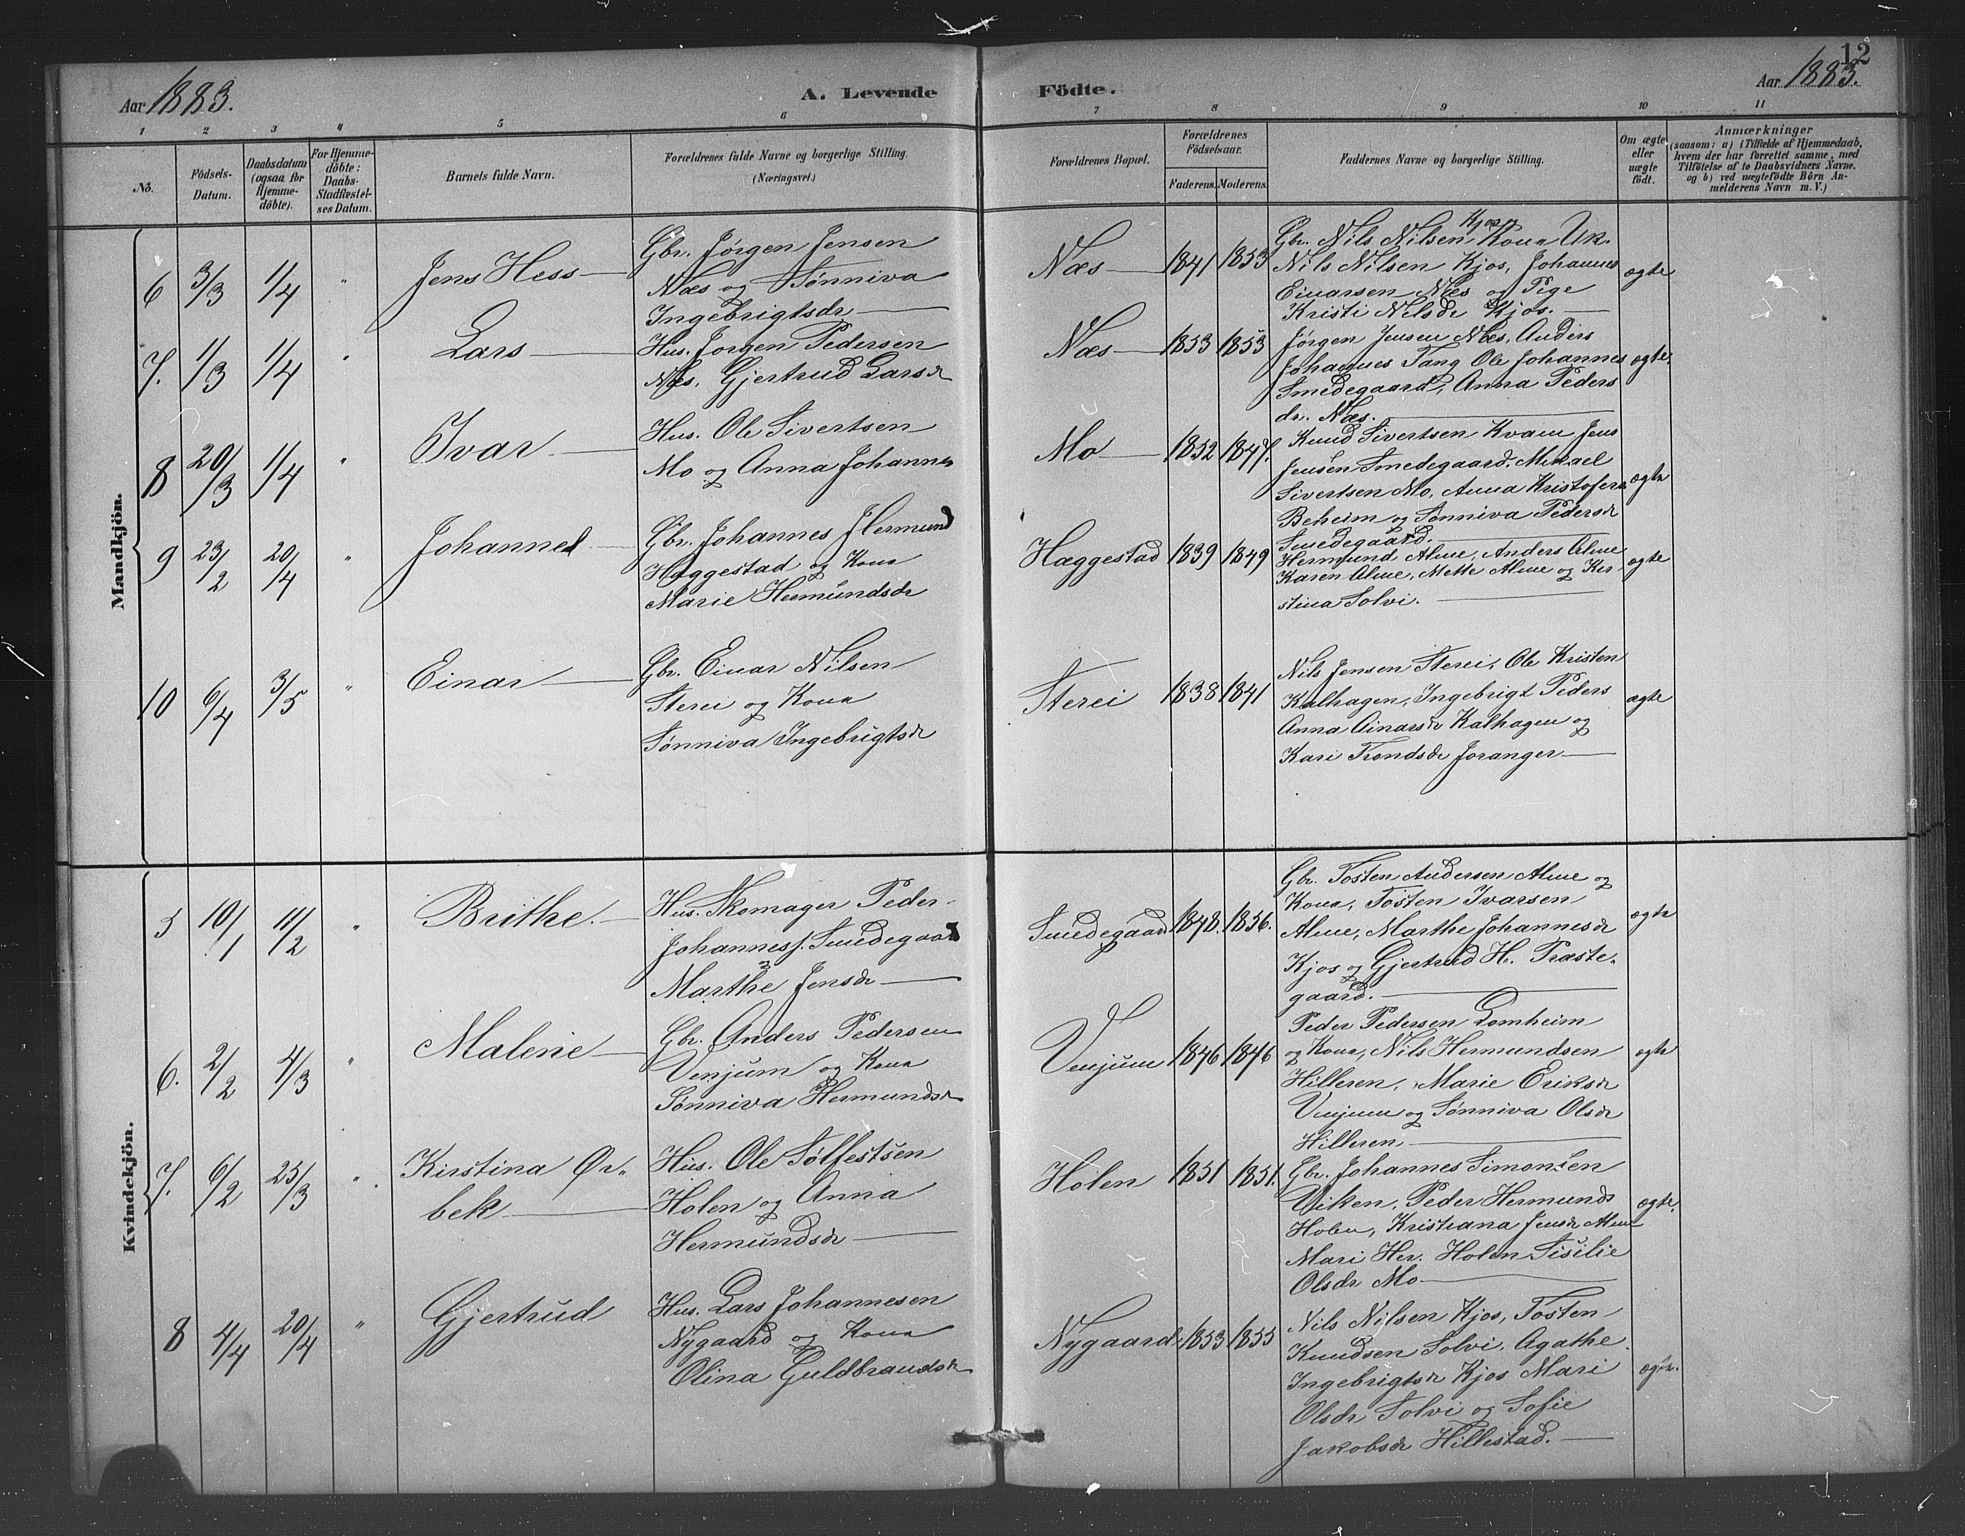 12
Aar 1883.
A. Levende Födte.
Aar 1883.
1 2 3 4 5 6 7 8 9 10 11
No.
Födsels-
Datum.
Daabsdatum
(ogsaa for
Hjemme-
döbte).
For Hjemme-
döbte:
Daabs-
Stadfæstel-
ses Datum.
Barnets fulde Navn.
Forældrenes fulde Navne og borgerlige Stilling.
(Næringsvei.)
Forældrenes Bopæl.
Forældrenes
Födselsaar.
Faderens. Moderens.
Faddernes Navne og borgerlige Stilling.
Om ægte
eller
uægte
födt.
Anmærkninger
(saasom: a) i Tilfælde af Hjemmedaab,
hvem der har forrettet samme, med
Tilföielse af to Daabsvidners Navne.
og b) ved uægtefödte Börn An-
melderens Navn m. V.)
Mandkjön.
6 3/3 1/4 " Jens Hess
Gbr. Jørgen Jensen
Næs og Sønniva
Ingebrigtsdr
Næs 1841 1853
Gbr. Nils Nilsen Kjos, Kona
Nils Nilsen Kjos, Johannes
Einarsen Næs og Pige
Kristi Nilsdr Kjos.
ægte
7. 1/3 1/4 " Lars
Hus. Jørgen Pedersen
Næs, Gjertrud Larsdr
Næs 1853 1853
Jørgen Jensen Næs, Anders
Johannes Tang Ole Johannes
Smedegaard, Anna Peders
dr. Næs.
ægte.
8 20/3 1/4 " Ivar
Hus. Ole Sivertsen
Mo og Anna Johannes
Mo 1852 1847.
Knud Sivertsen Kvam Jens
Jensen Smedegaard, Mikael
Sivertsen Mo, Anna Kristofersd
Beheim og Sønniva Pedersdr
Smedegaard.
ægte
9 23/2 20/4 " Johannes
Gbr. Johannes Hermund
Hæggestad og Kona
Marie Hermundsdr
Hæggestad 1839 1849
Hermund Alme, Anders Alme
Karen Alme, Mette Alme og Ker-
stina Solvi.
ægte
10 6/4 3/5 " Einar
Gbr. Einar Nilsen
Sterei og Kona
Sønniva Ingebrigtsdr
Sterei 1838 1841
Nils Jensen Sterei, Ole Kristen
Kalhagen, Ingebrigt Peders
Anna Ainarsdr Kalhagen og
Kari Trondsdr Joranger
ægte
Kvindekjön.
5 10/1 11/2 " Brithe.
Hus. Skomager Peder
Johannes. Smedegaard
Marthe Jensdr
Smedegaard 1848. 1856.
Gbr. Tosten Andersen Alme og
Kona, Tosten Ivarsen
Alme, Marthe Johannesdr
Kjos og Gjertrud H. Præste-
gaard.
ægte
6. 2/2 4/3 " Malene
Gbr. Anders Pedersen
Venjum og Kona
Sønniva Hermundsdr
Venjum 1846 1846
Peder Pedersen Lomheim
og Kona, Nils Hermundsen
Hilleren, Marie Eriksdr
Venjum og Sønniva Olsdr
Hilleren
ægte
7. 6/2 25/3 " Kirstina Ør-
bek
Hus. Ole Sølfestsen
Holen og Anna
Hermundsdr
Holen 1851 1851.
Gbr. Johannes Simonsen
Viken, Peder Hermunds
Holen, Kristiana Jensdr Alme
Mari Her. Holen Sisilie
Olsdr Mo
ægte.
8 4/4 20/4 " Gjertrud
Hus. Lars Johannesen
Nygaard og Kona
Olina Guldbrandsdr
Nygaard 1853 1855
Nils Nilsen Kjos, Tosten
Knudsen Solvi, Agathe
Ingebrigtsdr Kjos Mari
Olsdr Solvi og Sofie
Jakobsdr Hillestad.
ægte.